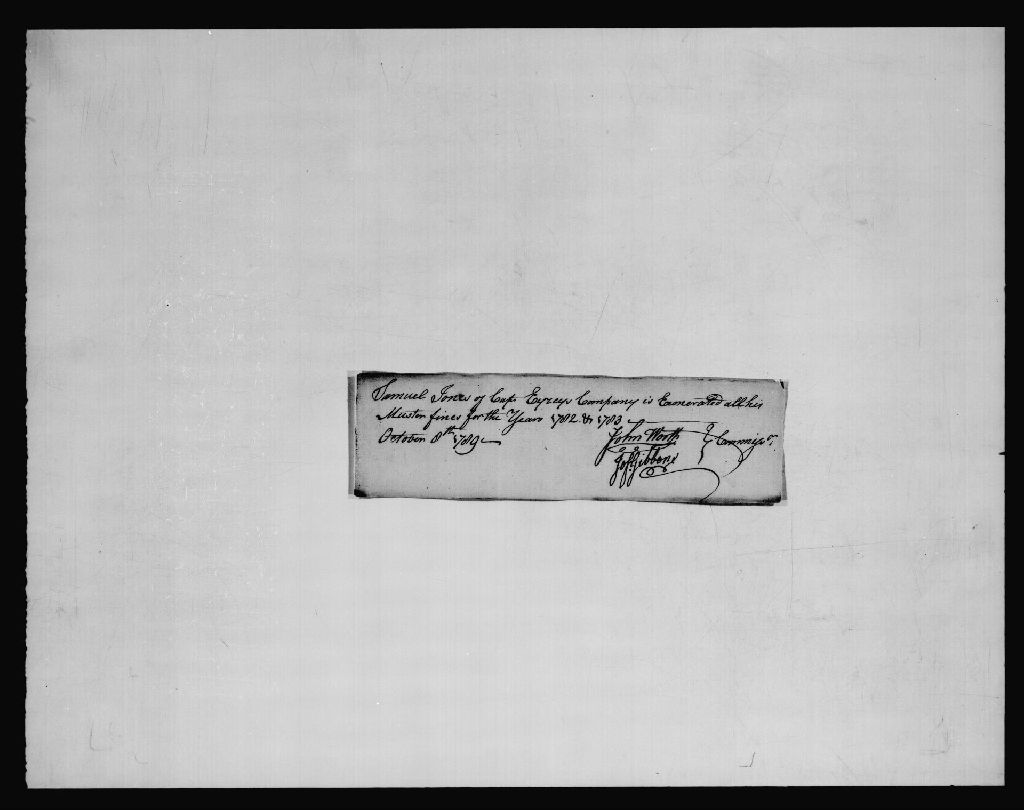 Samuel Jones of Capt Eyres Company is Exonerated all his
Muster fines for the Years 1782 & 1783
October 8th 1789
John Worth
Jos. Gibbons
Commissrs.